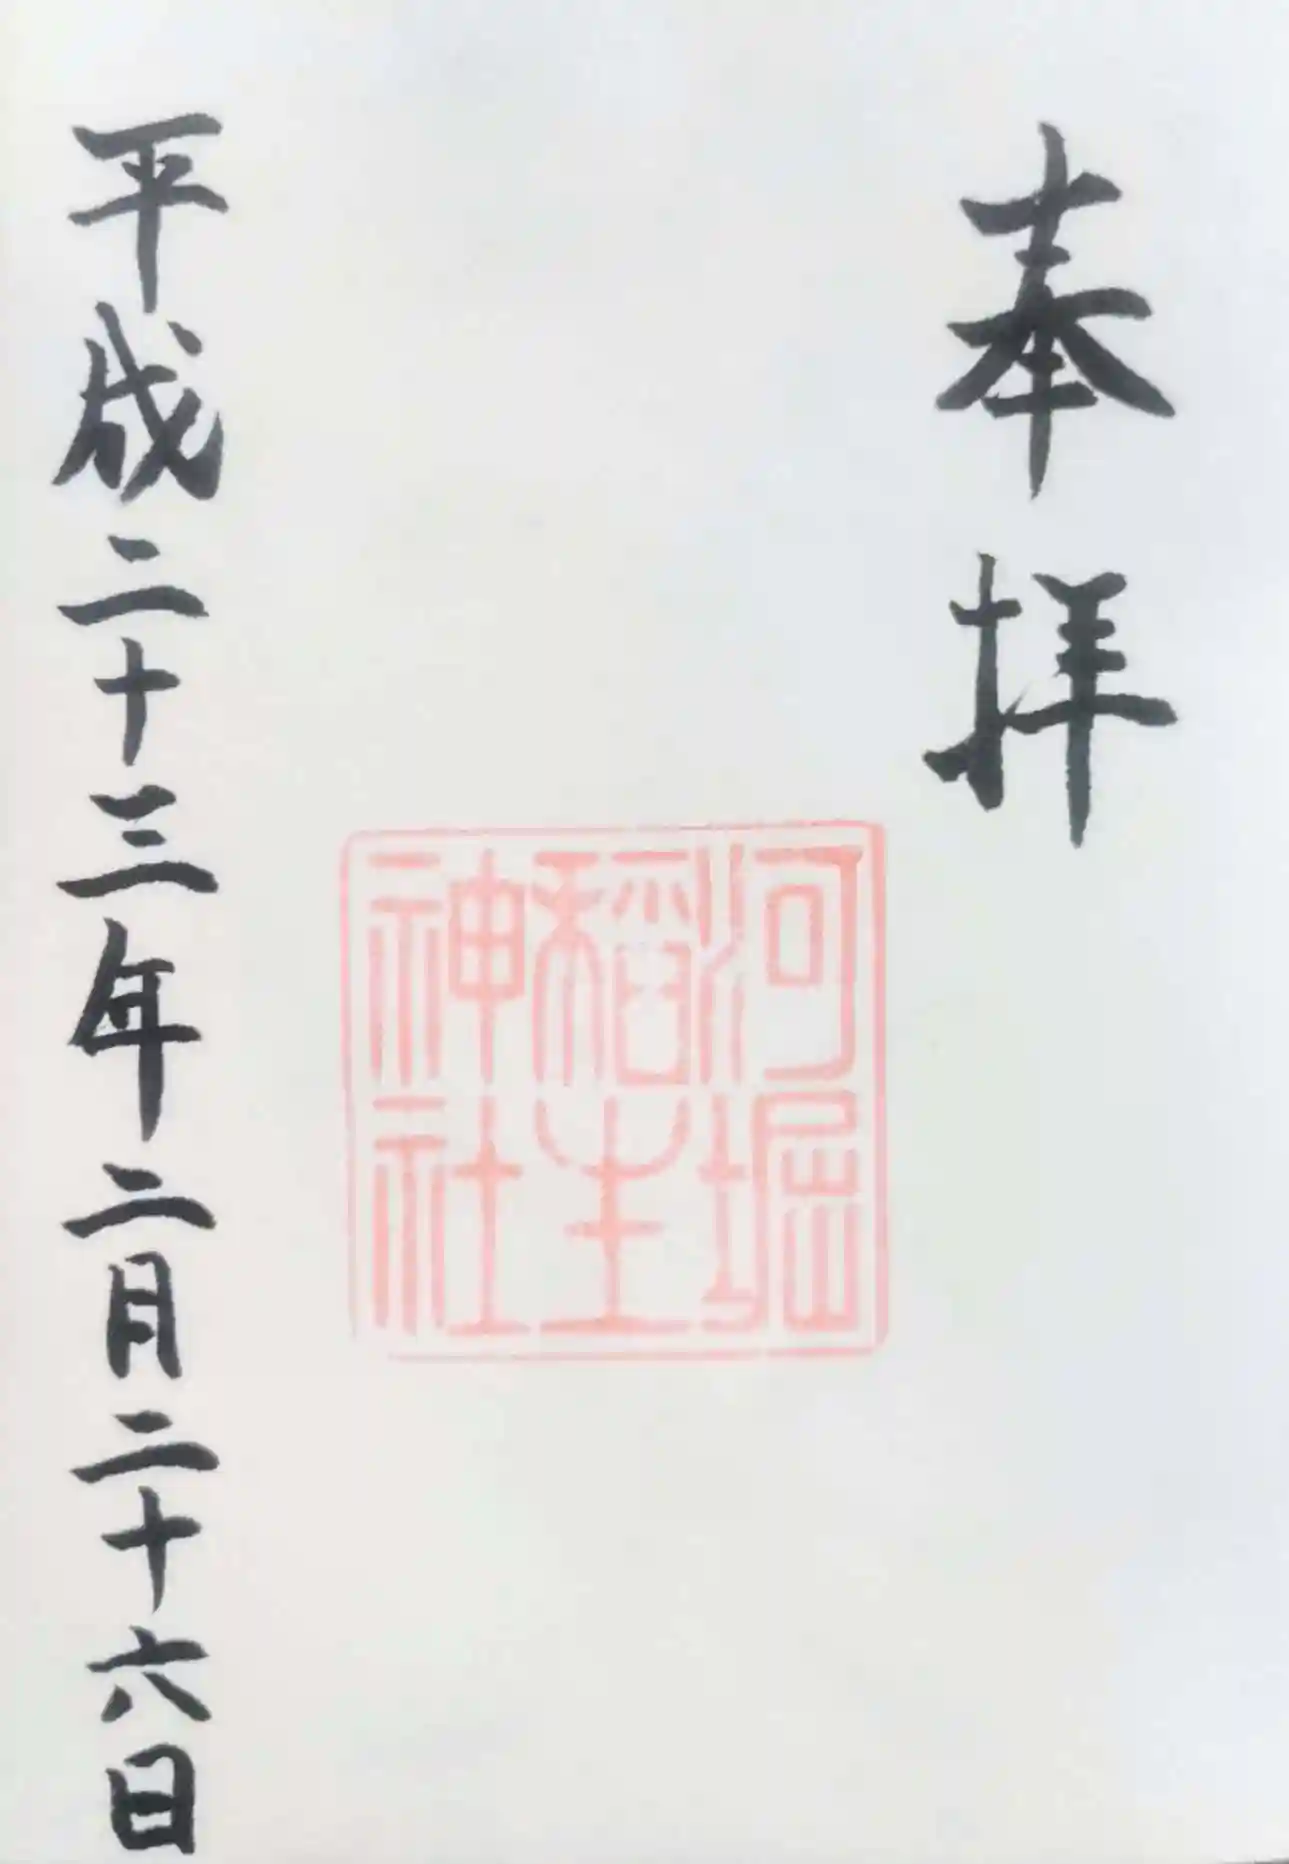 奉拝
河堀
稲生
神社
平成二十三年二月二十六日